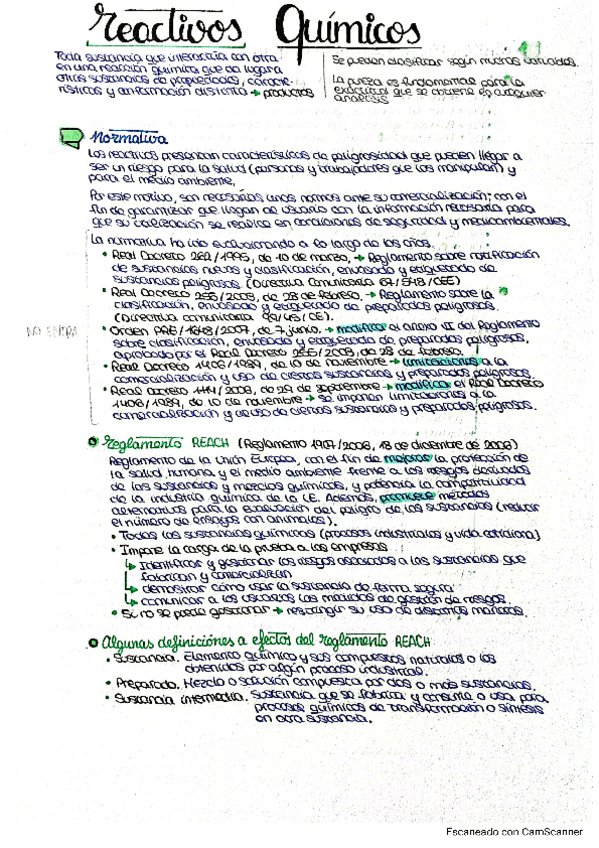 Reactivos Químicos
Toda sustancia que interactúa con otra
en una reacción química que da lugar a
otras sustancias de propiedades, caracte-
rísticas y conformación distinta → productos
Se pueden clasificar según muchas variables.
La pureza es fundamental para la
exactitud que se obtiene en cualquier
análisis
Normativa
Los reactivos presentan características de peligrosidad que pueden llegar a
ser un riesgo para la salud (personas y trabajadores que los manipulan) y
para el medio ambiente.
Por este motivo, son necesarias unas normas ante su comercialización; con el
fin de garantizar que llegan al usuario con la información necesaria para
que su utilización se realice en condiciones de seguridad y medioambientales.
La normativa ha ido evolucionando a lo largo de los años.
• Real Decreto 262/1995, de 10 de marzo, → Reglamento sobre notificación
de sustancias nuevas y clasificación, envasado y etiquetado de
sustancias peligrosas. (Directiva Comunitaria 67/548/CEE)
• Real Decreto 255/2003, de 28 de febrero. → Reglamento sobre la
clasificación, envasado y etiquetado de preparados peligrosos.
(Directiva comunitaria 99/45/CE).
NO ENTRA
• Orden PRE/1648/2007, de 7 junio. → modifica el anexo VI del Reglamento
sobre clasificación, envasado y etiquetado de preparados peligrosos,
aprobado por el Real Decreto 255/2003, de 28 de febrero.
• Real Decreto 1406/1989, de 10 de noviembre → limitaciones a la
comercialización y uso de ciertas sustancias y preparados peligrosos.
• Real Decreto 1114/2008, de 29 de septiembre → modifica el Real Decreto
1406/1989, de 10 de noviembre → se imponen limitaciones a la
comercialización y al uso de ciertas sustancias y preparados peligrosos.
Reglamento REACH (Reglamento 1907/2006, 18 de diciembre de 2006)
Reglamento de la Unión Europea, con el fin de mejorar la protección de
la salud humana y el medio ambiente frente a los riesgos derivados
de las sustancias y mezclas químicas, y potencia la competitividad
de la industria química de la UE. Además, promueve métodos
alternativos para la evaluación del peligro de las sustancias (reducir
el número de ensayos con animales).
• Todas las sustancias químicas (procesos industriales y vida cotidiana)
• Impone la carga de la prueba a las empresas
↳ Identificar y gestionar los riesgos asociados a las sustancias que
fabrican y comercializan
↳ demostrar cómo usar la sustancia de forma segura
↳ comunicar a los usuarios las medidas de gestión de riesgos.
• Si no se puede gestionar → restringir su uso de distintas maneras.
Algunas definiciones a efectos del reglamento REACH
• Sustancia. Elemento químico y sus compuestos naturales o los
obtenidos por algún proceso industrial.
• Preparado. Mezcla o solución compuesta por dos o más sustancias.
• Sustancia intermedia. Sustancia que se fabrica y consume o usa para
procesos químicos de transformación o síntesis
en otra sustancia.
Escaneado con CamScanner